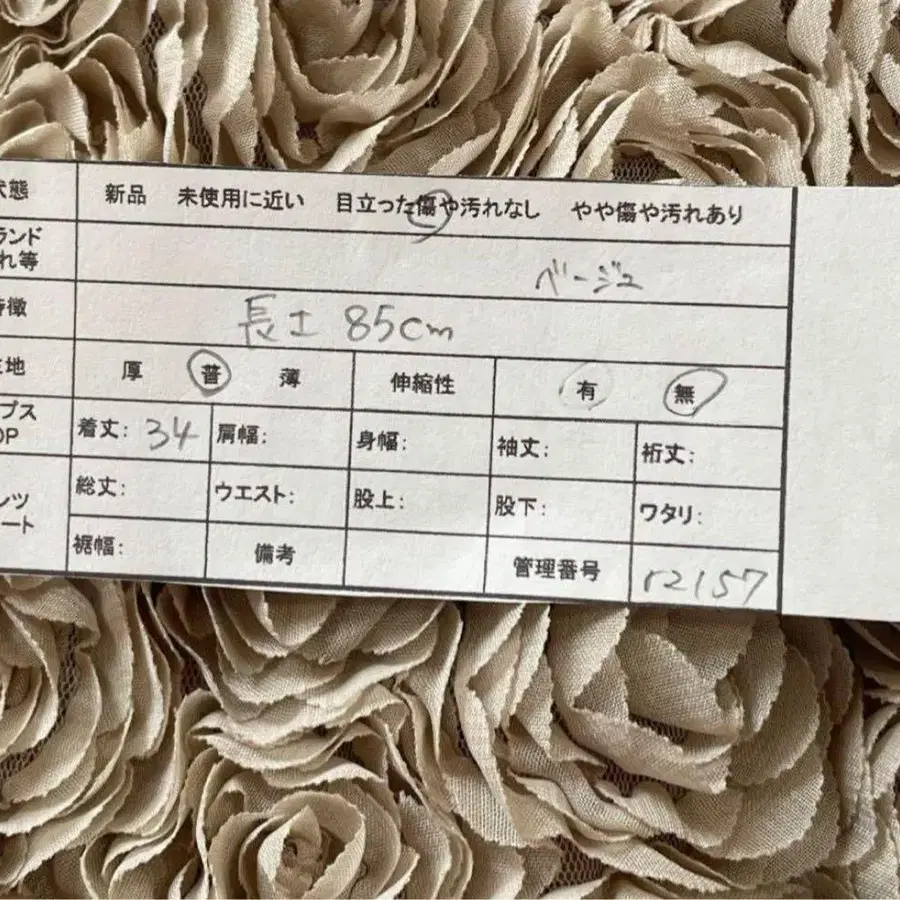 状態 新品 未使用に近い 目立った傷や汚れなし やや傷や汚れあり
ランド
れ等 ベージュ
特徴 長さ 85cm
生地 厚 普 薄 伸縮性 有 無
プス
OP 着丈: 34 肩幅: 身幅: 袖丈: 裄丈:
ンツ
ート 総丈: ウエスト: 股上: 股下: ワタリ:
裾幅: 備考 管理番号 r2157